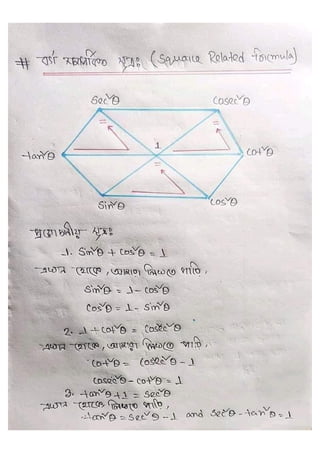 # বর্গ সম্পর্কিত সূত্রঃ (Square Related formula)
sec²θ cosec²θ
=
=
tan²θ 1 cot²θ
=
sin²θ cos²θ
প্রয়োজনীয় সূত্রঃ
1. Sin²θ + cos²θ = 1
এখান থেকে, আমরা লিখতে পারি,
Sin²θ = 1 - cos²θ
Cos²θ = 1 - Sin²θ
2. 1 + cot²θ = Cosec²θ
এখান থেকে, আমরা লিখতে পারি,
cot²θ = cosec²θ - 1
cosec²θ - cot²θ = 1
3. tan²θ + 1 = sec²θ
এখান থেকে লিখতে পারি,
tan²θ = sec²θ - 1 and sec²θ - tan²θ = 1